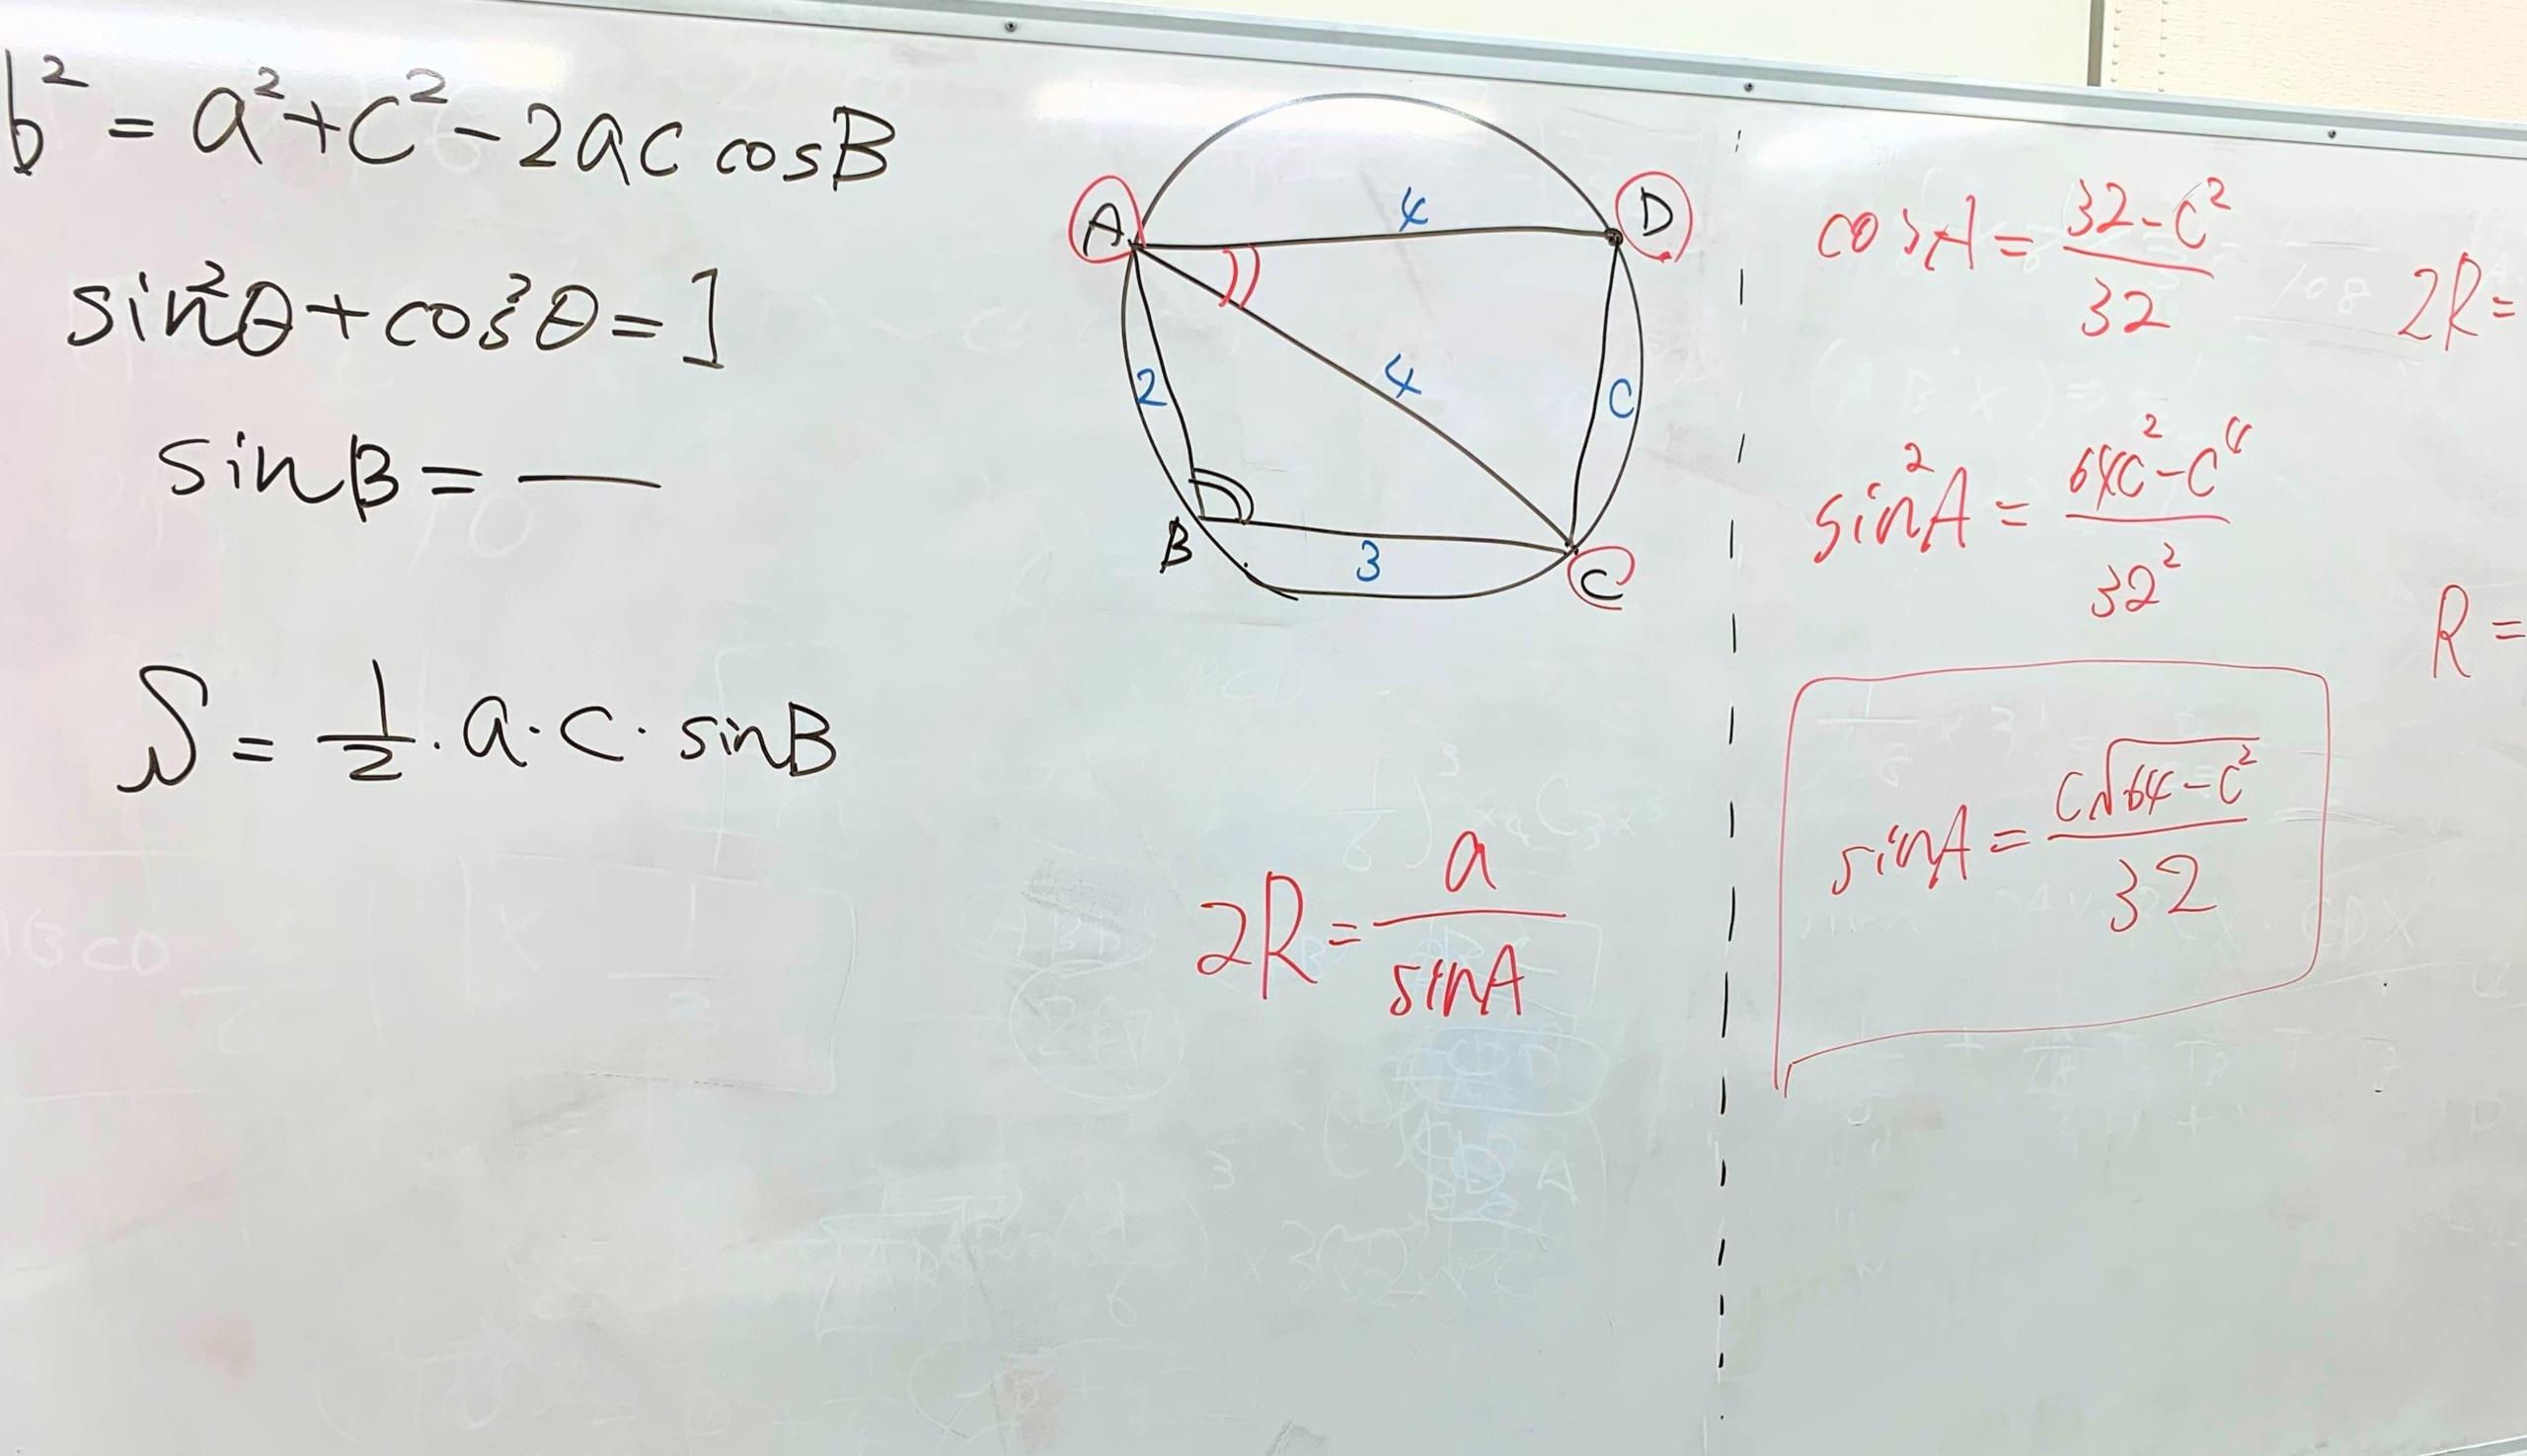 b² = a² + c² - 2ac cosB
sin²θ + cos²θ = 1
sinB = —
S = 1/2 · a · c · sinB
A
D
4
4
2
C
B
3
C
2R = a/sinA
cosA = 32-C²/32
sin²A = 64C²-C⁴/32²
sinA = C√64-C²/32
2R =
R =